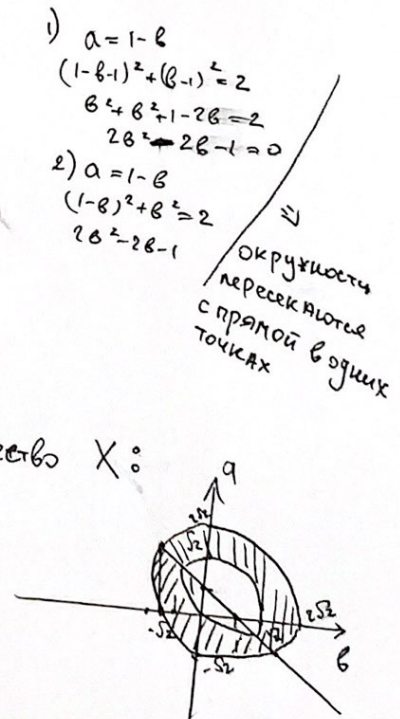 1) a = 1 - в
(1-в-1)² + (в-1)² = 2
в² + в² + 1 - 2в = 2
2в² - 2в - 1 = 0
2) a = 1 - в
(1-в)² + в² = 2
2в² - 2в - 1
⇒
окружности
пересекаются
с прямой в одних
точках
ество X:
a
2√2
√2
-√2
√2
2√2
-√2
в